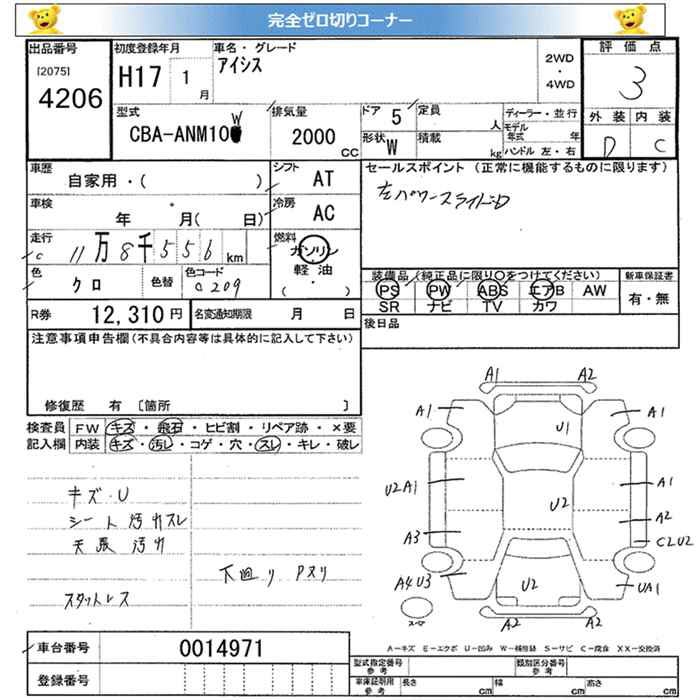 完全ゼロ切りコーナー
出品番号 初度登録年月 車名・グレード 評価点
[2075] H17 1月 アイシス 2WD・4WD 3
4206
型式 排気量 ドア 5 定員 人 ディーラー・並行 外装 内装
CBA-ANM10W 2000 CC 形状 W 積載 kg モデル年式 年 ハンドル 左・右 D C
車歴 シフト セールスポイント (正常に機能するものに限ります)
自家用・( ) AT 左パワースライドD
車検 冷房
年 月( 日) AC
走行 c 11万8千556km 燃料 ガソリン
軽油
( )
色 クロ 色替 色カラーコード C209
装備品(純正品に限り○をつけてください) 新車保証書
PS PW ABS エアB AW 有・無
SR ナビ TV カワ
R券 12,310円 名変通知期限 月 日 後日品
注意事項申告欄(不具合内容等は具体的に記入して下さい)
修復歴 有 〔箇所 〕
検査員 FW キズ・飛石・ヒビ割・リペア跡・×要
記入欄 内装 キズ・汚レ・コゲ・穴・スレ・キレ・破レ
キズ・U
シート汚れスレ
天張汚れ
下廻りPスリ
スタットレス
A1 A2
A1 U1 A1
U2A1 U2 A1
A2
A3 C2U2
A4U3 U2 UA1
A2 A2
A-キズ E-エクボ U-凹み W-補修跡 S-サビ C-腐食 XX-交換済
車台番号 0014971
登録番号
型式指定番号 参考 類別区分番号 参考
車庫証明用 参考 長さ cm 幅 cm 高さ cm